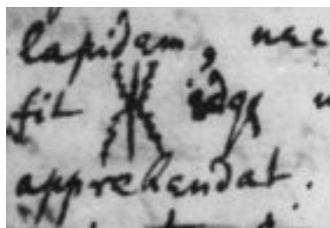 lapidem, nec
fit idq
apprehendat.